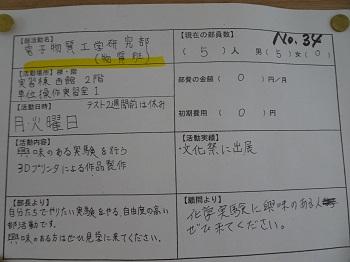 No.34
【部活動名】
電子物質工学研究部
(物質班)
【現在の部員数】
(5)人 男(5)女(0)
【活動場所】棟・階
実習棟 西館 2階
単位操作実習室1
【部費の金額】(0)円/月
【活動日時】
テスト2週間前は休み
月・火曜日
初期費用(0)円
【活動内容】
興味のある実験を行う
3Dプリンタによる作品製作
【活動実績】
・文化祭に出展
【部長より】
自分たちでやりたい実験をやる、自由度の高い
部活動です。
興味のある方はぜひ見学に来てください。
【顧問より】
化学実験に興味のある人
ぜひ来てください。